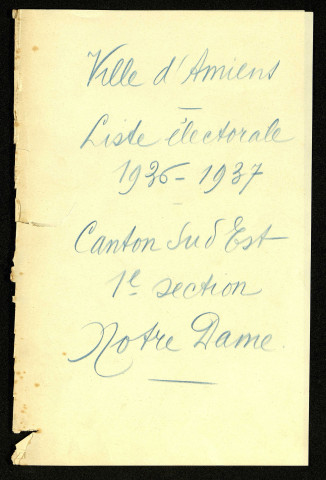 Ville d'Amiens
Liste électorale
1936-1937
Canton Sud Est
1e section
Notre Dame